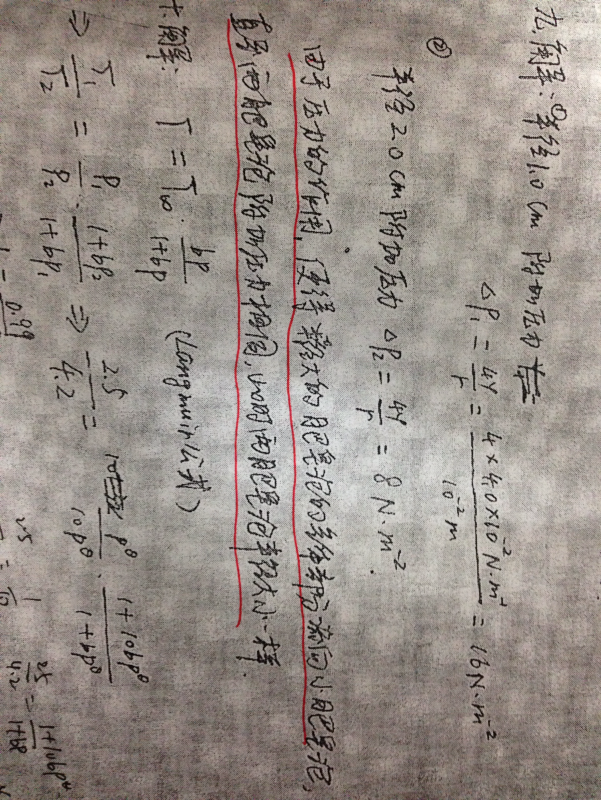 九.解:①半径1.0cm 附加压力
ΔP₁ = 4γ/r = 4×4.0×10⁻²N·m⁻¹/10⁻²m = 16N·m⁻²
② 半径2.0cm 附加压力 ΔP₂ = 4γ/r = 8N·m⁻²
由于压力的作用,使得较大的肥皂泡的会流向小肥皂泡,
直到两肥皂泡附加压力相同,此时两肥皂泡半径大小一样.
十.解: Γ = Γ∞ · bp/1+bp (Langmuir公式)
⇒ Γ₁/Γ₂ = P₁/P₂ · 1+bP₂/1+bP₁ ⇒ 2.5/4.2 = p^θ/10p^θ · 1+10bp^θ/1+bp^θ